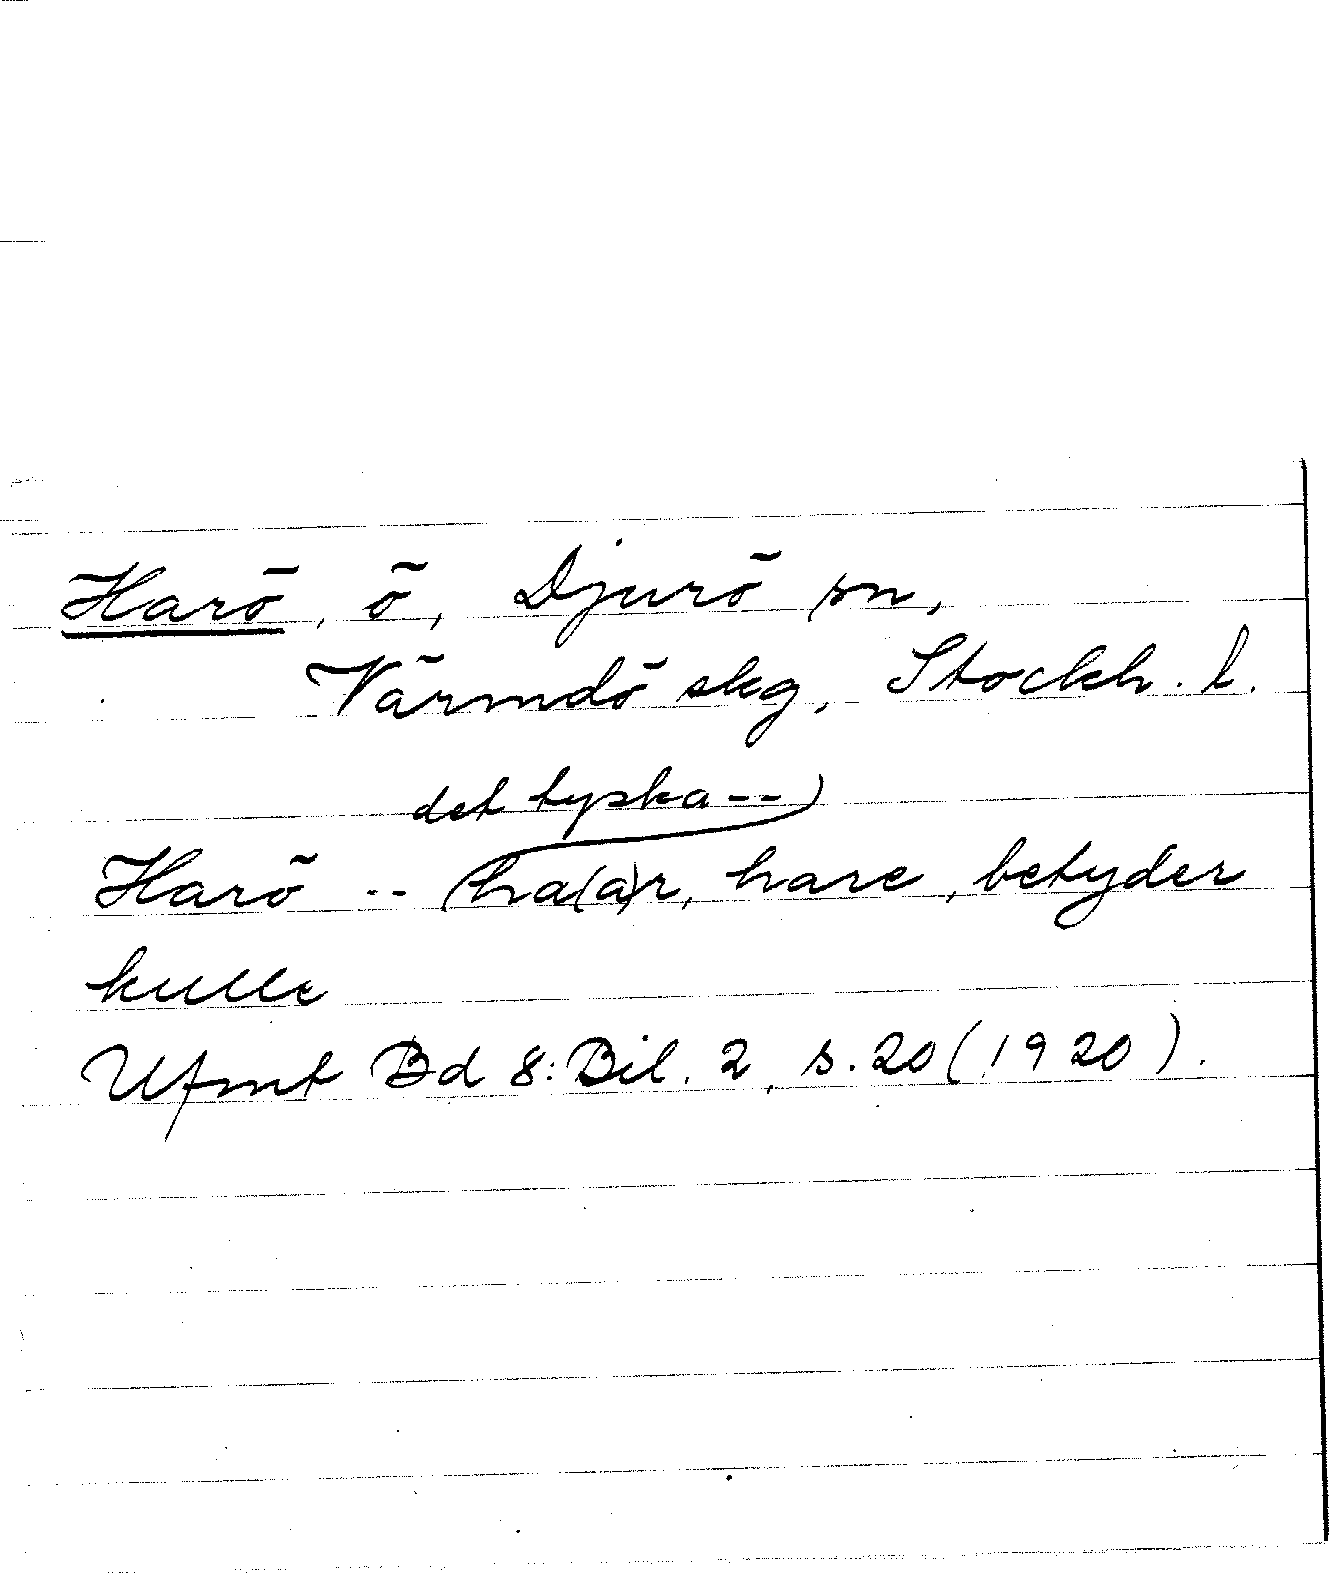 Harö, ö, Djurö sn,
Värmdö skg, Stockh. l.
det tyska --
Harö -- ha(a)r, hare, betyder
kulle
Ufmt Bd 8: Bil. 2, s. 20 (1920).